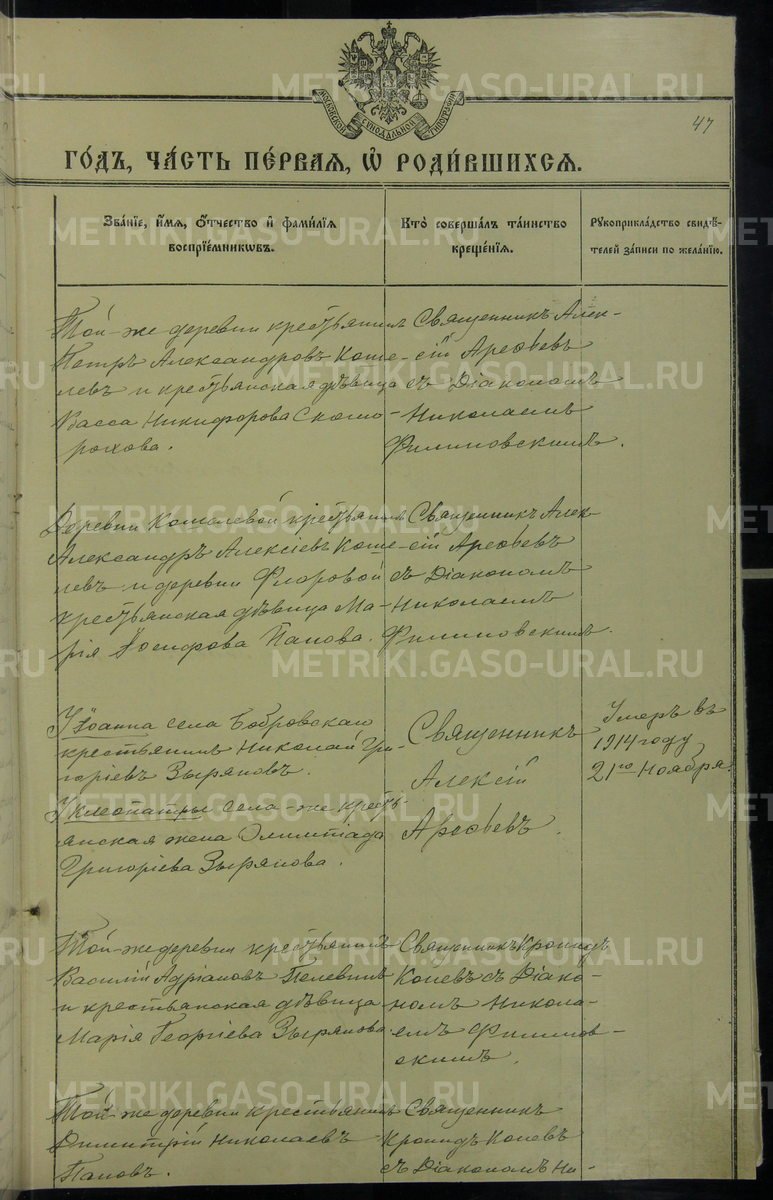 МОСКОВСКОЙ СѴНОДАЛЬНОЙ ТИПОГРАФІИ
47
ГО́ДЪ, ЧА́СТЬ ПЕ́РВАЯ, Ѡ҆ РОДИ́ВШИХСѦ.
Зва́нїе, и҆́мѧ, ѻ҆́тчество и҆ фами́лїѧ
воспрїе́мникѡвъ.
Кто̀ соверша́лъ та́инство
креще́нїѧ.
Рꙋкоприкла́дство свидѣ́-
телей за́писи по жела́нїю.
Той-же деревни крестьянинъ
Петръ Александровъ Коше-
левъ и крестьянская дѣвица
Васса Никифорова Скомо-
рохова.
Священникъ Алек-
сій Арефьевъ
съ Діакономъ
Николаемъ
Филиповскимъ.
Деревни Кошелевой крестьянинъ
Александръ Алексіевъ Коше-
левъ и деревни Флоровой
крестьянская дѣвица Ма-
рія Іосифова Панова.
Священникъ Алек-
сій Арефьевъ
съ Діакономъ
Николаемъ
Филиповскимъ.
У Іоанна села Бобровскаго
крестьянинъ Николай Гри-
горіевъ Зыряновъ.
У Клеопатры села-же кресть-
янская жена Олимпіада
Григоріева Зырянова.
Священникъ
Алексій
Арефьевъ.
Умеръ въ
1914 году
21го Ноября.
Той-же деревни крестьянинъ
Василій Адріановъ Пелевинъ
и крестьянская дѣвица
Марія Георгіева Зырянова.
Священникъ Кронидъ
Копевъ съ Діако-
номъ Никола-
емъ Филипов-
скимъ.
Той-же деревни крестьянинъ
Димитрій Николаевъ
Пановъ.
Священникъ
Кронидъ Копевъ
съ Діакономъ Ни-
METRIKI.GASO-URAL.RU